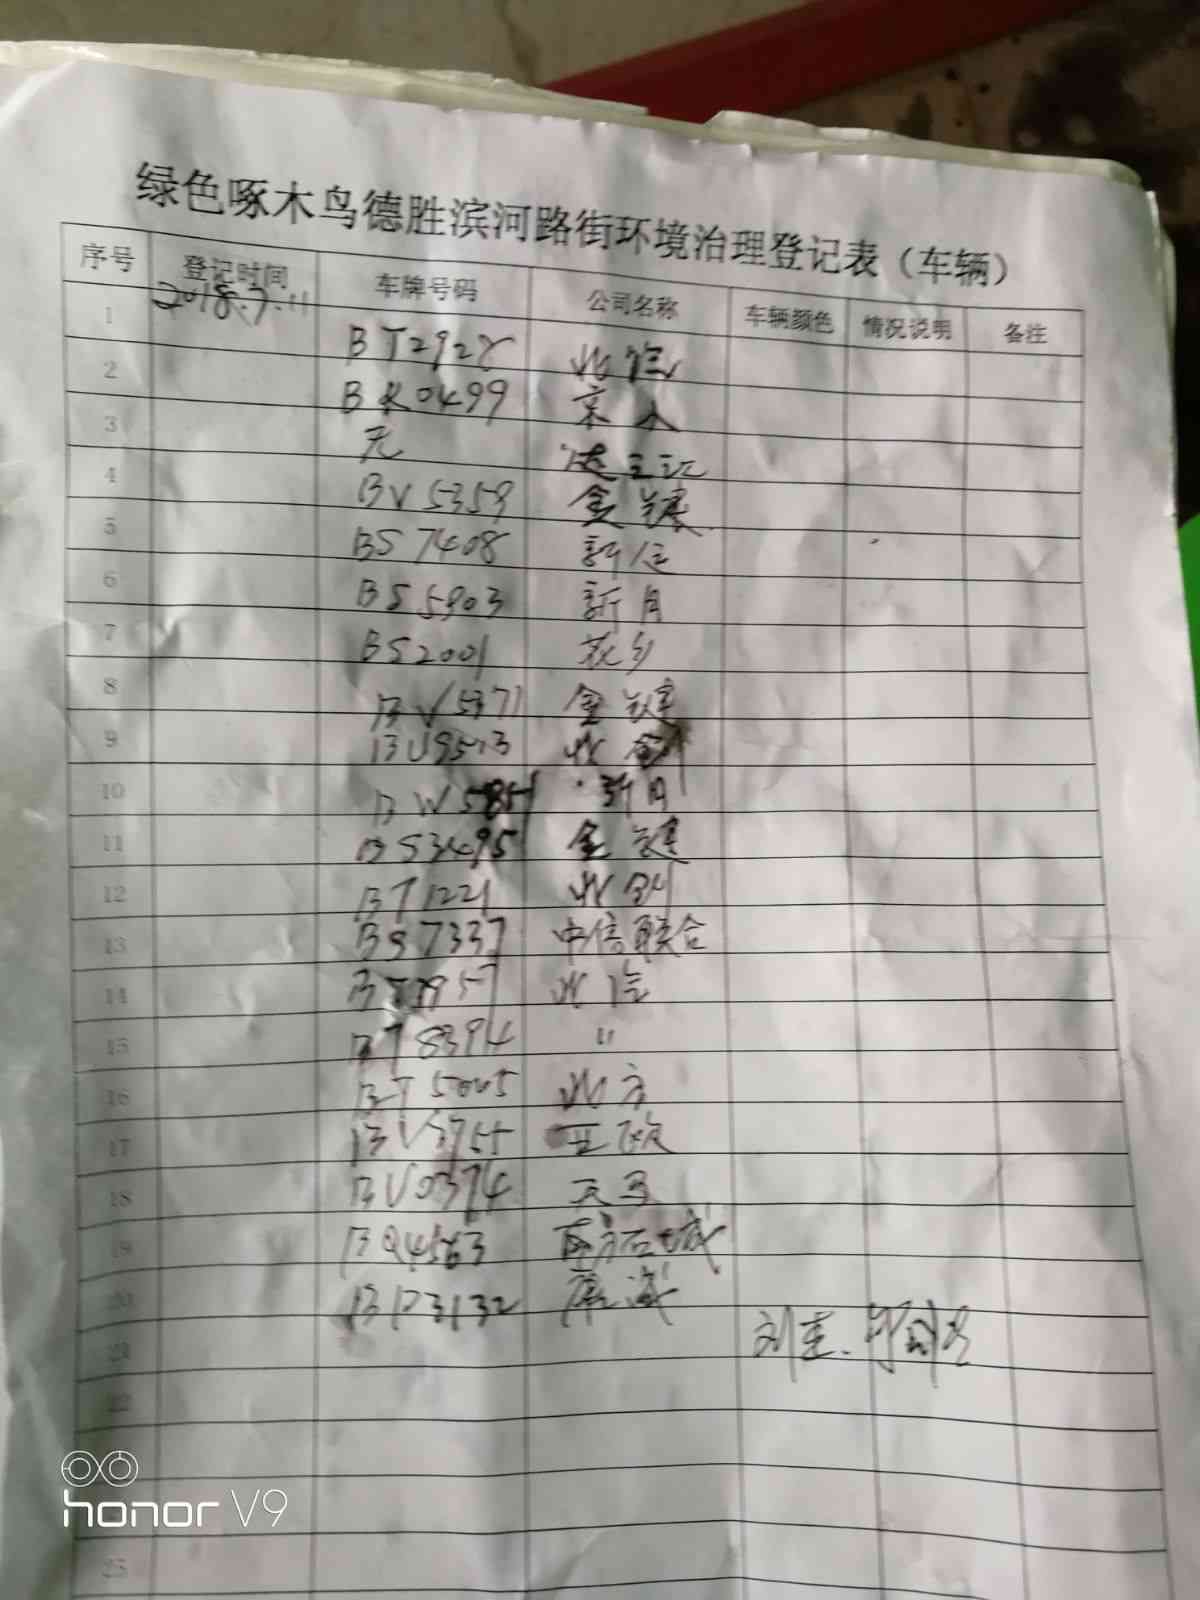 绿色啄木鸟德胜滨河路街环境治理登记表（车辆）
序号 登记时间 车牌号码 公司名称 车辆颜色 情况说明 备注
1 2018.7.11 BT2928 北汽
2 BR0499
3 无
4 BV5359 金键
5 BS7408
6 BS5903 新月
7 BS2001 花乡
8 BV5371 金键
9 BU9513 北创
10 新月
11 BS3495 金键
12 BT1221 北创
13 BS7337 中信联合
14 北汽
15 BT8394 〃
16 BT5005 北方
17 BV3755
18 BU0374 天马
19 BQ4563
20 BP3132
21 刘
22
25
honor V9